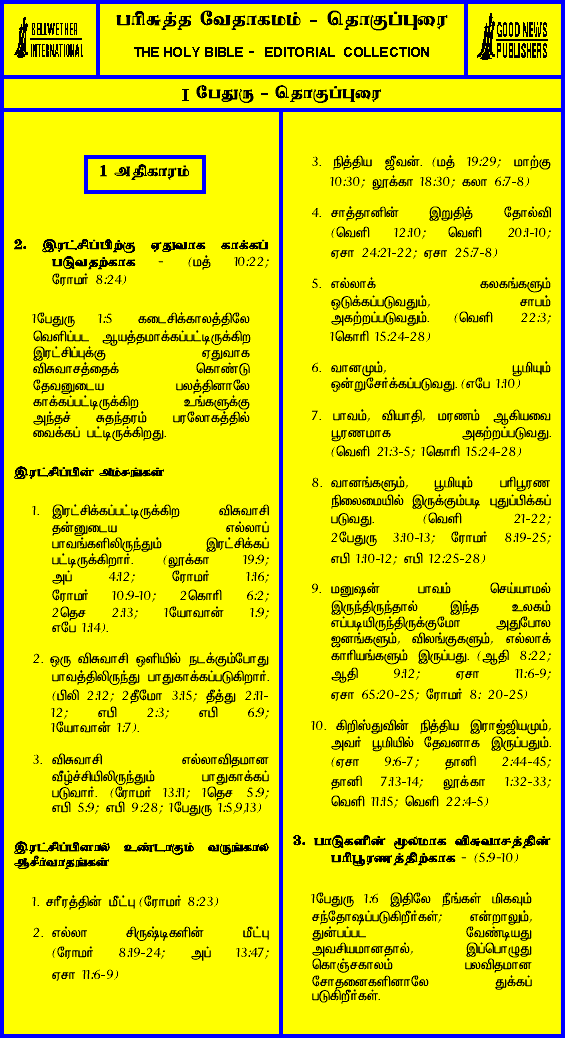 BELLWETHER
INTERNATIONAL
பரிசுத்த வேதாகமம் - தொகுப்புரை
THE HOLY BIBLE - EDITORIAL COLLECTION
GOOD NEWS
PUBLISHERS
I பேதுரு - தொகுப்புரை
1 அதிகாரம்
2. இரட்சிப்பிற்கு ஏதுவாக காக்கப்
படுவதற்காக - (மத் 10:22;
ரோமர் 8:24)
1பேதுரு 1:5 கடைசிக்காலத்திலே
வெளிப்பட ஆயத்தமாக்கப்பட்டிருக்கிற
இரட்சிப்புக்கு ஏதுவாக
விசுவாசத்தைக் கொண்டு
தேவனுடைய பலத்தினாலே
காக்கப்பட்டிருக்கிற உங்களுக்கு
அந்தச் சுதந்தரம் பரலோகத்தில்
வைக்கப் பட்டிருக்கிறது.
இரட்சிப்பின் அம்சங்கள்
1. இரட்சிக்கப்பட்டிருக்கிற விசுவாசி
தன்னுடைய எல்லாப்
பாவங்களிலிருந்தும் இரட்சிக்கப்
பட்டிருக்கிறார். (லூக்கா 19:9;
அப் 4:12; ரோமர் 1:16;
ரோமர் 10:9-10; 2கொரி 6:2;
2தெச 2:13; 1யோவான் 1:9;
எபே 1:14).
2. ஒரு விசுவாசி ஒளியில் நடக்கும்போது
பாவத்திலிருந்து பாதுகாக்கப்படுகிறார்.
(பிலி 2:12; 2தீமோ 3:15; தீத்து 2:11-
12; எபி 2:3; எபி 6:9;
1யோவான் 1:7).
3. விசுவாசி எல்லாவிதமான
வீழ்ச்சியிலிருந்தும் பாதுகாக்கப்
படுவார். (ரோமர் 13:11; 1தெச 5:9;
எபி 5:9; எபி 9:28; 1பேதுரு 1:5,9,13)
இரட்சிப்பினால் உண்டாகும் வருங்கால
ஆசீர்வாதங்கள்
1. சரீரத்தின் மீட்பு (ரோமர் 8:23)
2. எல்லா சிருஷ்டிகளின் மீட்பு
(ரோமர் 8:19-24; அப் 13:47;
ஏசா 11:6-9)
3. நித்திய ஜீவன். (மத் 19:29; மாற்கு
10:30; லூக்கா 18:30; கலா 6:7-8)
4. சாத்தானின் இறுதித் தோல்வி
(வெளி 12:10; வெளி 20:1-10;
ஏசா 24:21-22; ஏசா 25:7-8)
5. எல்லாக் கலகங்களும்
ஒடுக்கப்படுவதும், சாபம்
அகற்றப்படுவதும். (வெளி 22:3;
1கொரி 15:24-28)
6. வானமும், பூமியும்
ஒன்றுசேர்க்கப்படுவது. (எபே 1:10)
7. பாவம், வியாதி, மரணம் ஆகியவை
பூரணமாக அகற்றப்படுவது.
(வெளி 21:3-5; 1கொரி 15:24-28)
8. வானங்களும், பூமியும் பரிபூரண
நிலைமையில் இருக்கும்படி புதுப்பிக்கப்
படுவது. (வெளி 21-22;
2பேதுரு 3:10-13; ரோமர் 8:19-25;
எபி 1:10-12; எபி 12:25-28)
9. மனுஷன் பாவம் செய்யாமல்
இருந்திருந்தால் இந்த உலகம்
எப்படியிருந்திருக்குமோ அதுபோல
ஜனங்களும், விலங்குகளும், எல்லாக்
காரியங்களும் இருப்பது. (ஆதி 8:22;
ஆதி 9:12; ஏசா 11:6-9;
ஏசா 65:20-25; ரோமர் 8: 20-25)
10. கிறிஸ்துவின் நித்திய இராஜ்ஜியமும்,
அவர் பூமியில் தேவனாக இருப்பதும்.
(ஏசா 9:6-7; தானி 2:44-45;
தானி 7:13-14; லூக்கா 1:32-33;
வெளி 11:15; வெளி 22:4-5)
3. பாடுகளின் மூலமாக விசுவாசத்தின்
பரிபூரணத்திற்காக - (5:9-10)
1பேதுரு 1:6 இதிலே நீங்கள் மிகவும்
சந்தோஷப்படுகிறீர்கள்; என்றாலும்,
துன்பப்பட வேண்டியது
அவசியமானதால், இப்பொழுது
கொஞ்சகாலம் பலவிதமான
சோதனைகளினாலே துக்கப்
படுகிறீர்கள்.